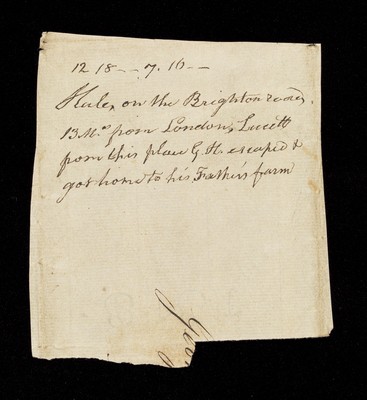 12 18 -- 7. 16 --
on the Brighton road,
13 M.s from London,
from this place G. H. escaped &
got home to his Father's farm
Geo